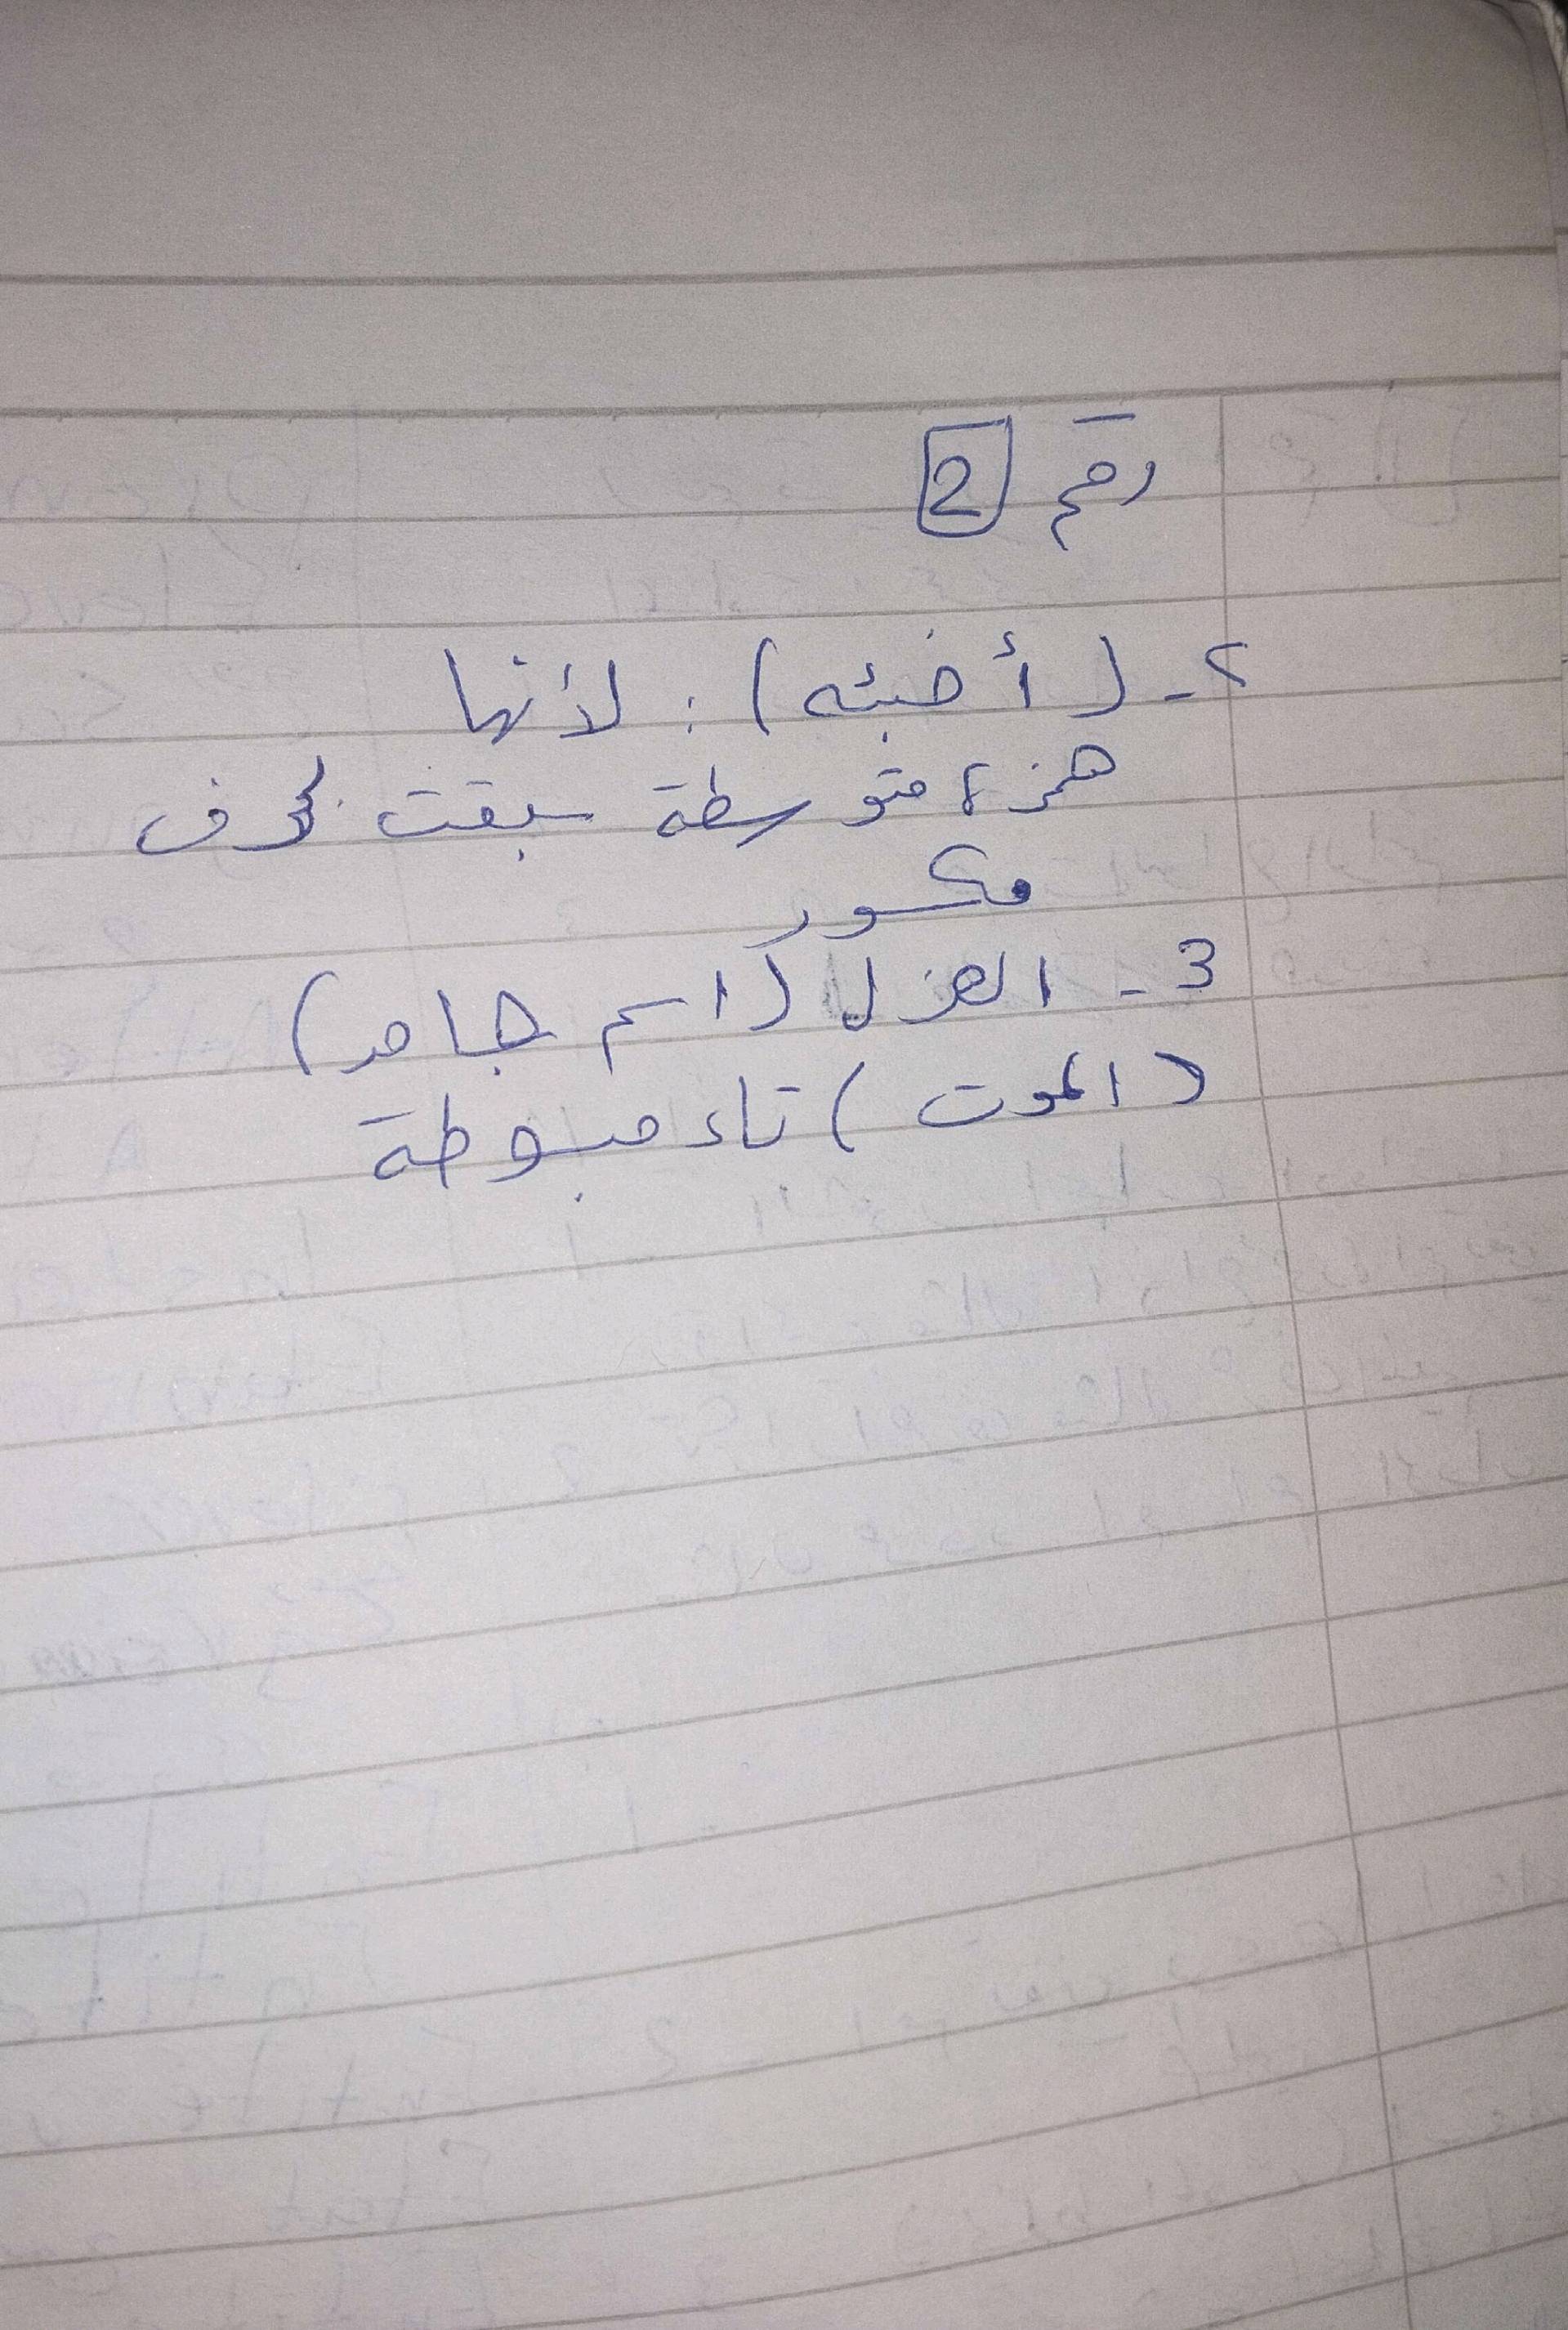 رقم 2
٢ - (أخبئه) : لأنها
همزة متوسطة سبقت بحرف
مكسور
3 - الغزل (اسم جامد)
(الموت) تاء مبسوطة